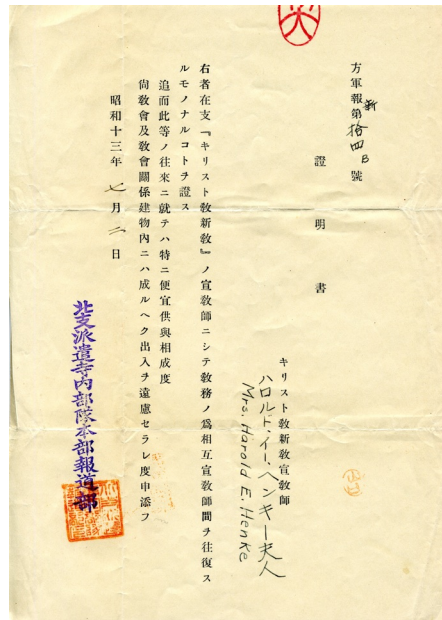 方軍報第新拾四B號
證明書
キリスト敎新敎宣敎師
ハロルド・イー・ヘンキー夫人
Mrs. Harold E. Henke
右者在支『キリスト敎新敎』ノ宣敎師ニシテ敎務ノ爲相互宣敎師間ヲ往復ス
ルモノナルコトヲ證ス
追而此等ノ往來ニ就テハ特ニ便宜供與相成度
尙敎會及敎會關係建物內ニハ成ルヘク出入ヲ遠慮セラレ度申添フ
昭和十三年七月二日
北支派遣寺內部隊本部報道部